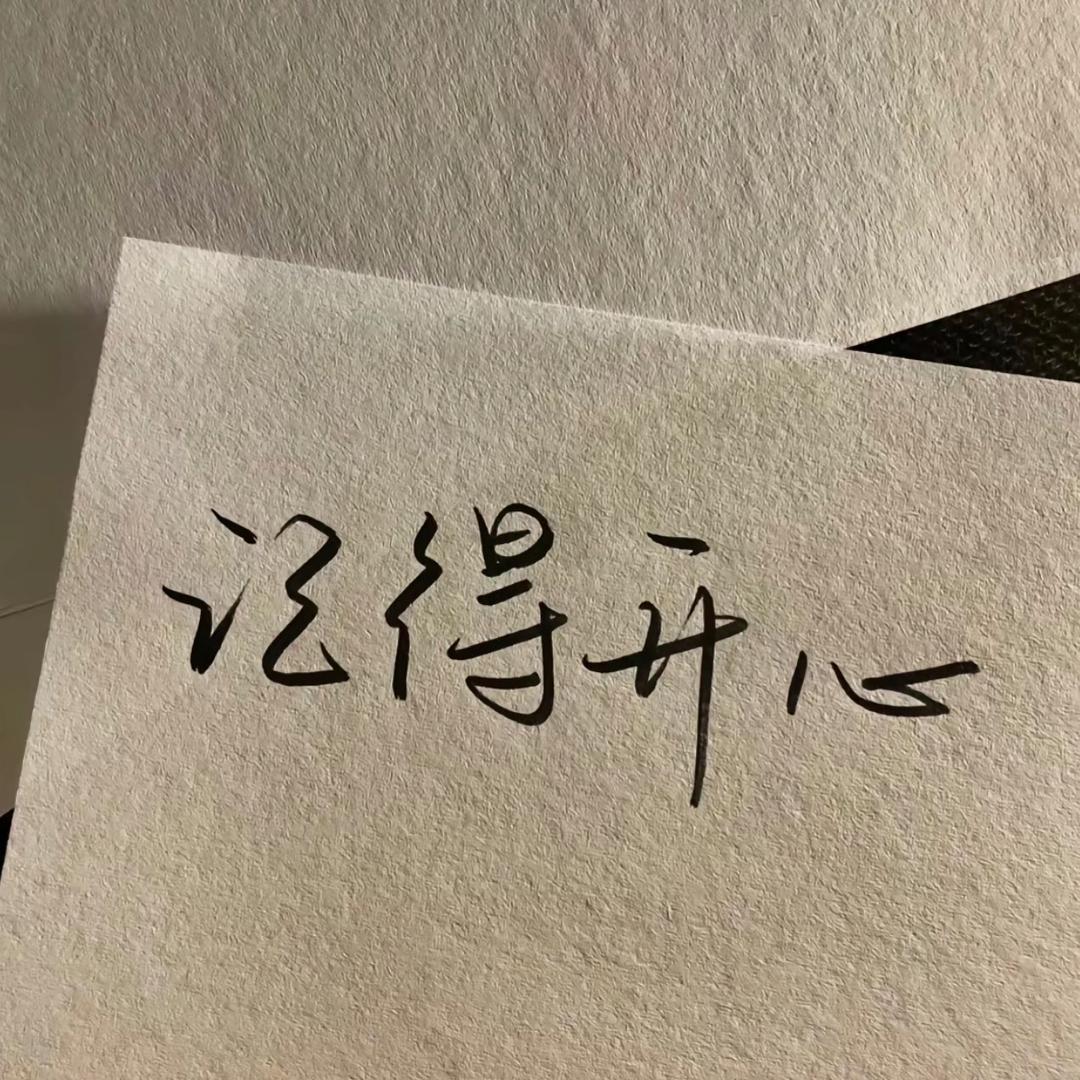 记得开心